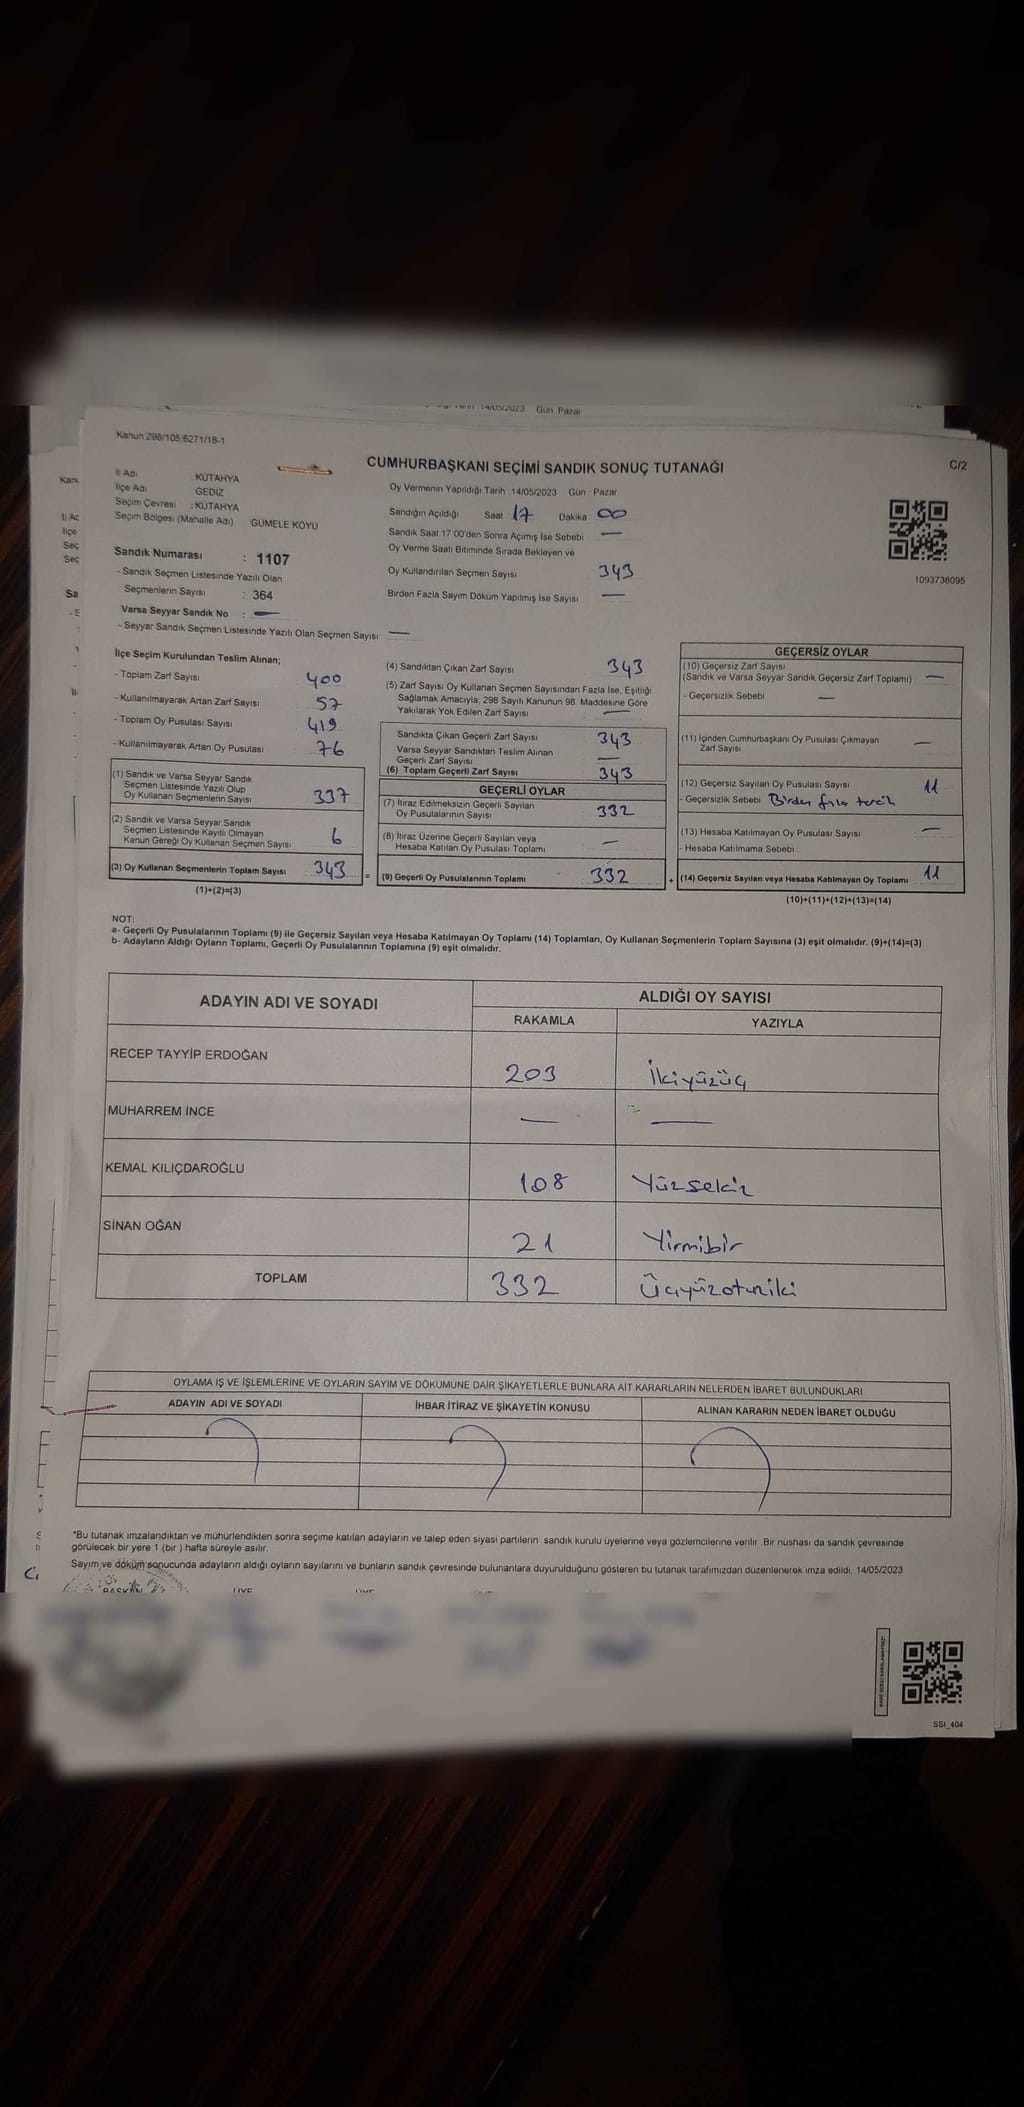 14/05/2023 Gün Pazar
Kanun:298/105,6271/18-1
CUMHURBAŞKANI SEÇİMİ SANDIK SONUÇ TUTANAĞI
C/2
İl Adı KÜTAHYA
İlçe Adı GEDİZ
Seçim Çevresi :KÜTAHYA
Seçim Bölgesi (Mahalle Adı) GÜMELE KÖYÜ
Oy Vermenin Yapıldığı Tarih 14/05/2023 Gün Pazar
Sandığın Açıldığı Saat 17 Dakika 00
Sandık Saat 17.00'den Sonra Açımış İse Sebebi —
Oy Verme Saati Bitiminde Sırada Bekleyen ve
Oy Kullandırılan Seçmen Sayısı 343
Birden Fazla Sayım Döküm Yapılmış İse Sayısı —
1093738095
Sandık Numarası : 1107
- Sandık Seçmen Listesinde Yazılı Olan
Seçmenlerin Sayısı : 364
Varsa Seyyar Sandık No : —
- Seyyar Sandık Seçmen Listesinde Yazılı Olan Seçmen Sayısı —
İlçe Seçim Kurulundan Teslim Alınan;
- Toplam Zarf Sayısı 400
- Kullanılmayarak Artan Zarf Sayısı 57
- Toplam Oy Pusulası Sayısı 419
- Kullanılmayarak Artan Oy Pusulası 76
(1) Sandık ve Varsa Seyyar Sandık
Seçmen Listesinde Yazılı Olup
Oy Kullanan Seçmenlerin Sayısı 337
(2) Sandık ve Varsa Seyyar Sandık
Seçmen Listesinde Kayıtlı Olmayan
Kanun Gereği Oy Kullanan Seçmen Sayısı 6
(3) Oy Kullanan Seçmenlerin Toplam Sayısı 343
(1)+(2)=(3)
(4) Sandıktan Çıkan Zarf Sayısı 343
(5) Zarf Sayısı Oy Kullanan Seçmen Sayısından Fazla İse, Eşitliği
Sağlamak Amacıyla, 298 Sayılı Kanunun 98. Maddesine Göre
Yakılarak Yok Edilen Zarf Sayısı —
Sandıkta Çıkan Geçerli Zarf Sayısı 343
Varsa Seyyar Sandıktan Teslim Alınan
Geçerli Zarf Sayısı —
(6) Toplam Geçerli Zarf Sayısı 343
GEÇERLİ OYLAR
(7) İtiraz Edilmeksizin Geçerli Sayılan
Oy Pusulalarının Sayısı 332
(8) İtiraz Üzerine Geçerli Sayılan veya
Hesaba Katılan Oy Pusulası Toplamı —
= (9) Geçerli Oy Pusulalarının Toplamı 332 +
GEÇERSİZ OYLAR
(10) Geçersiz Zarf Sayısı
(Sandık ve Varsa Seyyar Sandık Geçersiz Zarf Toplamı) —
- Geçersizlik Sebebi —
(11) İçinden Cumhurbaşkanı Oy Pusulası Çıkmayan
Zarf Sayısı —
(12) Geçersiz Sayılan Oy Pusulası Sayısı 11
- Geçersizlik Sebebi Birden fazla tercih
(13) Hesaba Katılmayan Oy Pusulası Sayısı —
- Hesaba Katılmama Sebebi
(14) Geçersiz Sayılan veya Hesaba Katılmayan Oy Toplamı 11
(10)+(11)+(12)+(13)=(14)
NOT:
a- Geçerli Oy Pusulalarının Toplamı (9) ile Geçersiz Sayılan veya Hesaba Katılmayan Oy Toplamı (14) Toplamları, Oy Kullanan Seçmenlerin Toplam Sayısına (3) eşit olmalıdır. (9)+(14)=(3)
b- Adayların Aldığı Oyların Toplamı, Geçerli Oy Pusulalarının Toplamına (9) eşit olmalıdır.
ADAYIN ADI VE SOYADI ALDIĞI OY SAYISI
RAKAMLA YAZIYLA
RECEP TAYYİP ERDOĞAN 203 İkiyüzüç
MUHARREM İNCE — —
KEMAL KILIÇDAROĞLU 108 Yüzsekiz
SİNAN OĞAN 21 Yirmibir
TOPLAM 332 Üçyüzotuziki
OYLAMA İŞ VE İŞLEMLERİNE VE OYLARIN SAYIM VE DÖKÜMÜNE DAİR ŞİKAYETLERLE BUNLARA AİT KARARLARIN NELERDEN İBARET BULUNDUKLARI
ADAYIN ADI VE SOYADI İHBAR İTİRAZ VE ŞİKAYETİN KONUSU ALINAN KARARIN NEDEN İBARET OLDUĞU
*Bu tutanak imzalandıktan ve mühürlendikten sonra seçime katılan adayların ve talep eden siyasi partilerin sandık kurulu üyelerine veya gözlemcilerine verilir .Bir nüshası da sandık çevresinde
görülecek bir yere 1 (bir ) hafta süreyle asılır.
Sayım ve döküm sonucunda adayların aldığı oyların sayılarını ve bunların sandık çevresinde bulunanlara duyurulduğunu gösteren bu tutanak tarafımızdan düzenlenerek imza edildi. 14/05/2023
BAŞKAN ÜYE ÜYE
SSI_404